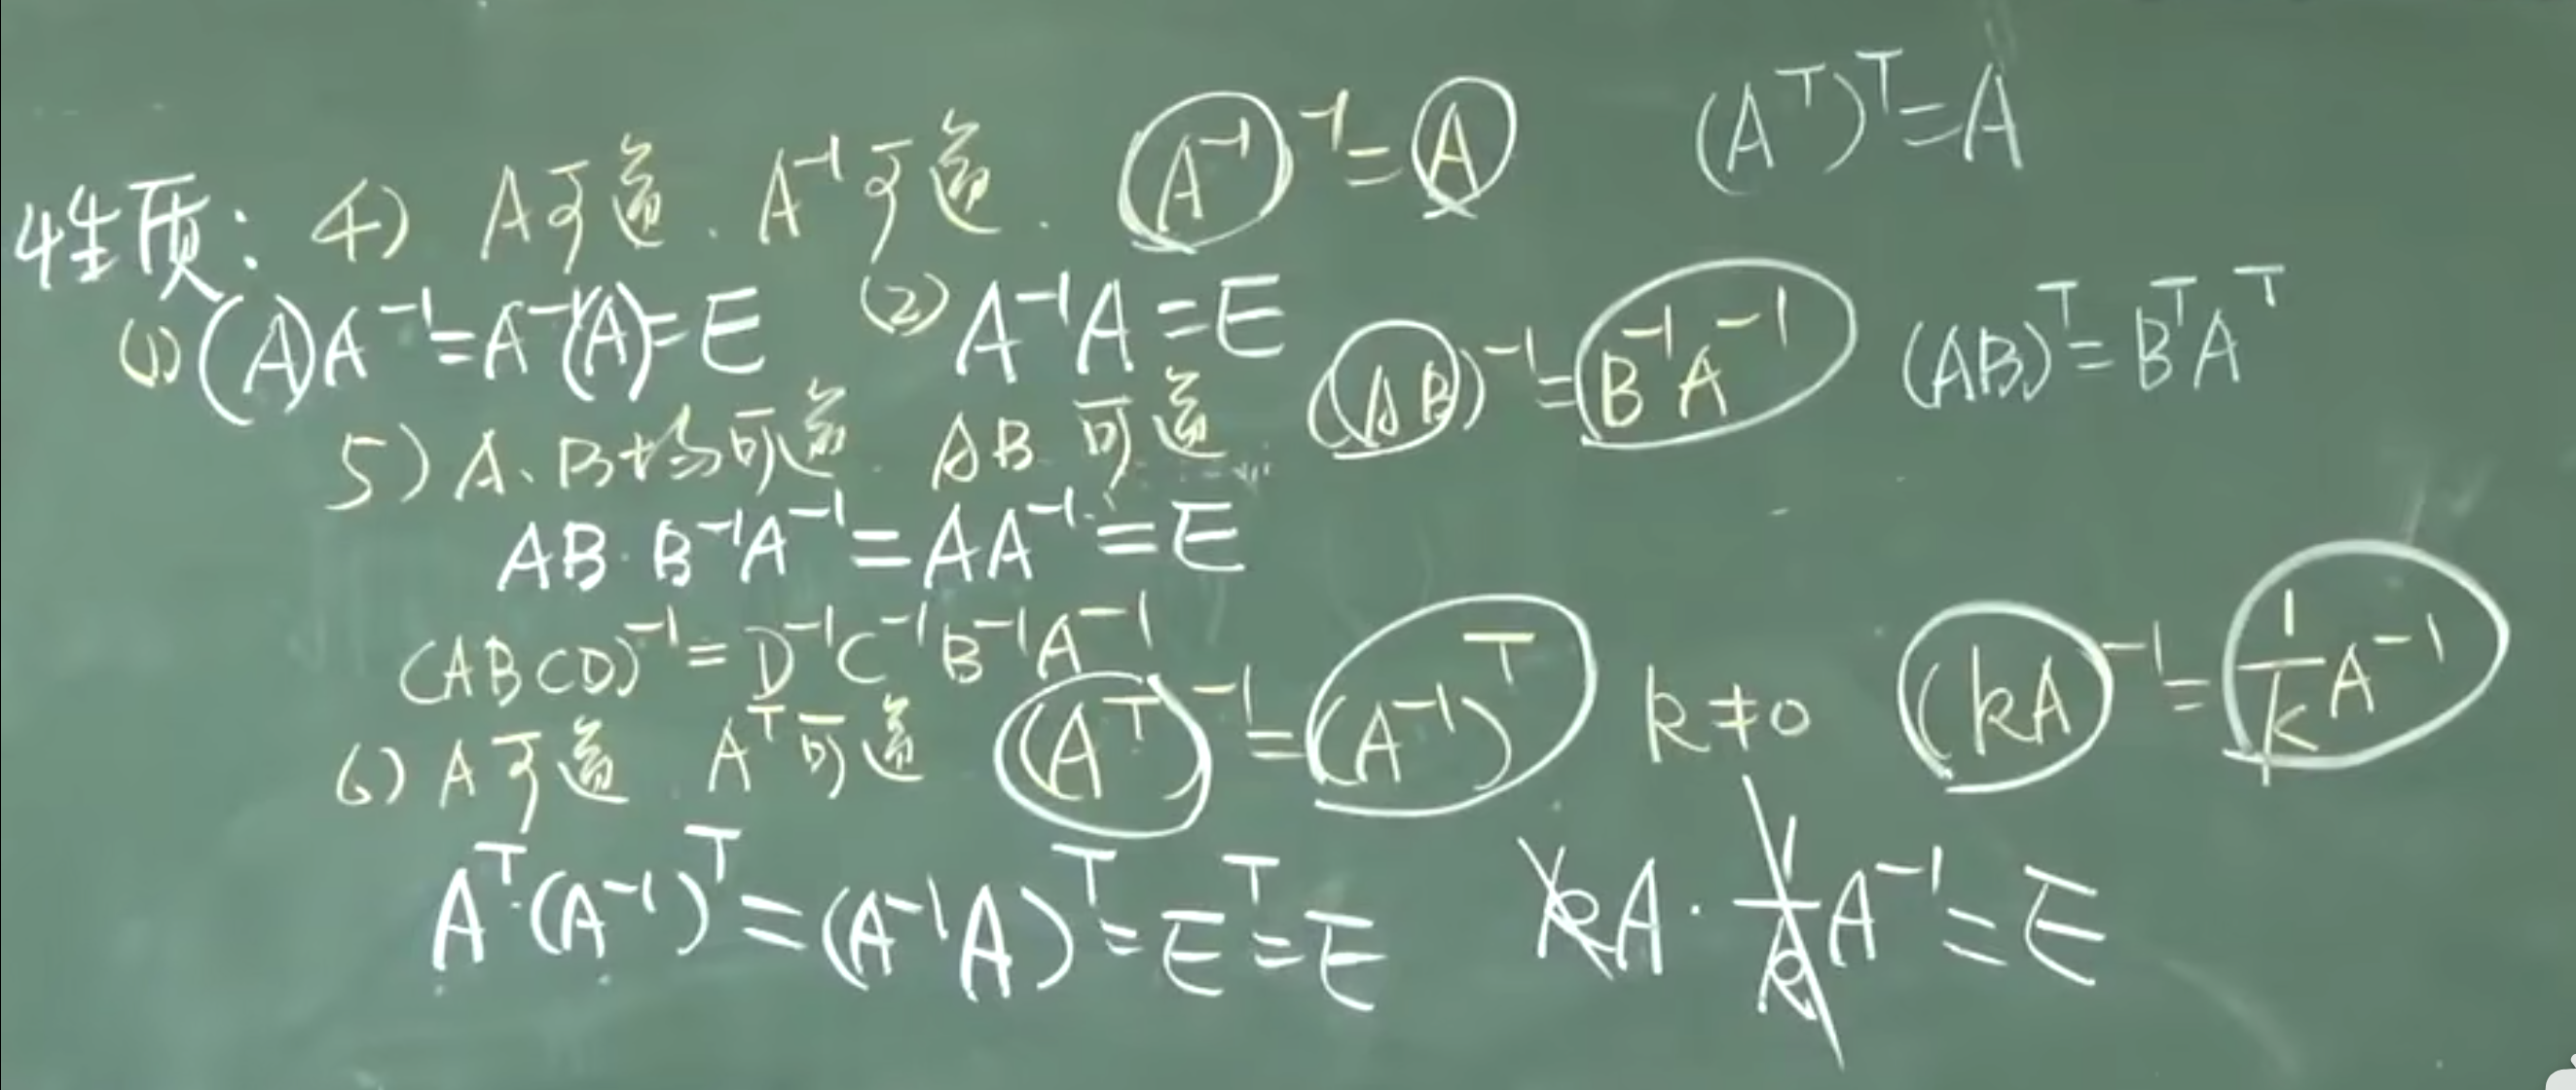 性质: 4) A可逆. A⁻¹可逆. (A⁻¹)⁻¹=A (Aᵀ)ᵀ=A
(1) (A)A⁻¹=A⁻¹(A)=E (2) A⁻¹A=E (AB)⁻¹=B⁻¹A⁻¹ (AB)ᵀ=BᵀAᵀ
5) A、B均可逆. AB可逆
AB·B⁻¹A⁻¹=AA⁻¹=E
(ABCD)⁻¹=D⁻¹C⁻¹B⁻¹A⁻¹
6) A可逆 Aᵀ可逆 (Aᵀ)⁻¹=(A⁻¹)ᵀ k≠0 (kA)⁻¹=1/k A⁻¹
Aᵀ·(A⁻¹)ᵀ=(A⁻¹A)ᵀ=Eᵀ=E kA·1/k A⁻¹=E